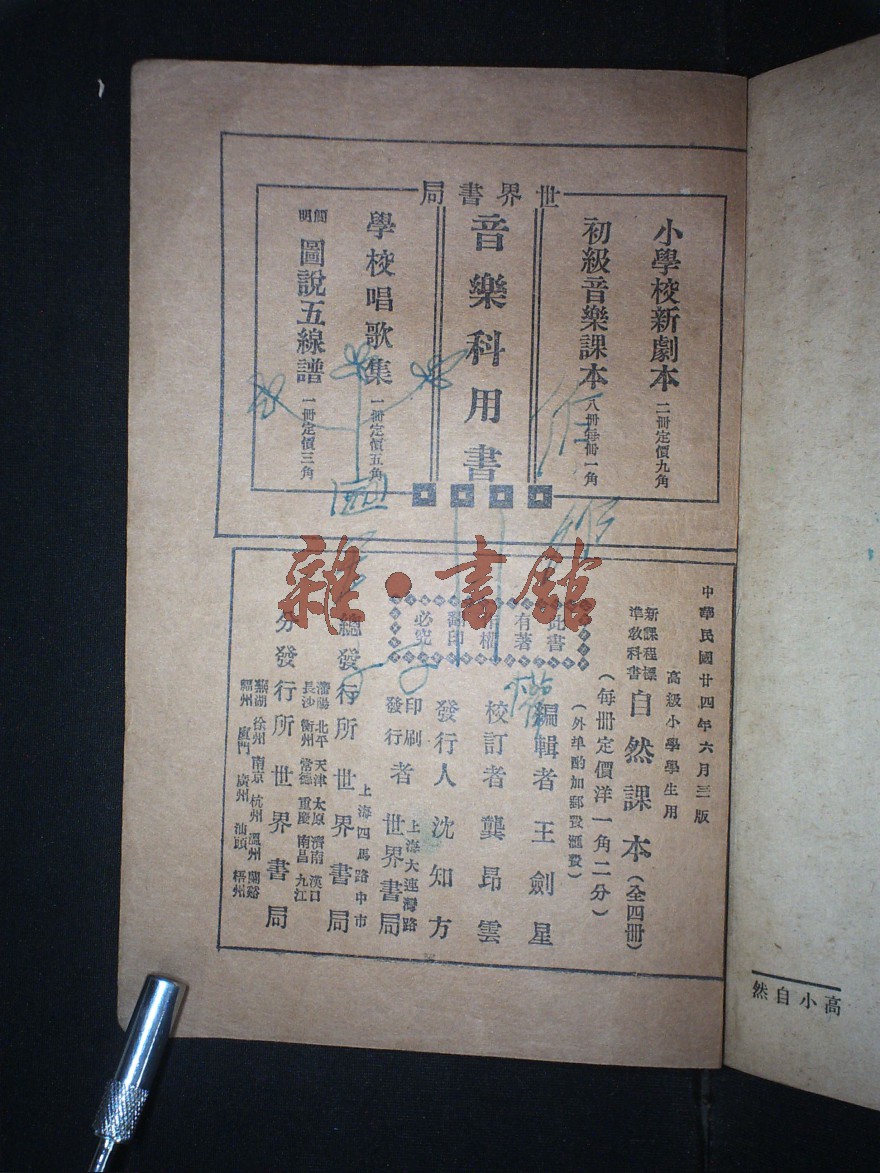 世界書局
小學校新劇本 二冊定價九角
初級音樂課本 八冊每冊一角
音樂科用書
學校唱歌集 一冊定價五角
簡明 圖說五線譜 一冊定價三角
中華民國廿四年六月三版
高級小學學生用
新課程標準教科書 自然課本（全四冊）
（每冊定價洋一角二分）
（外埠酌加郵費滙費）
此書
有著
作權
翻印
必究
編輯者 王劍星
校訂者 龔昂雲
發行人 沈知方
印刷發行者 上海大連灣路 世界書局
上海四馬路中市
總發行所 世界書局
瀋陽 北平 天津 太原 濟南 漢口
長沙 衡州 常德 重慶 南昌 九江
分發行所 世界書局
蕪湖 徐州 南京 杭州 溫州 蘭谿
福州 廈門 廣州 汕頭 梧州
高小自然
雜·書館